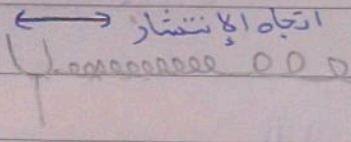 اتجاه الإنتشار